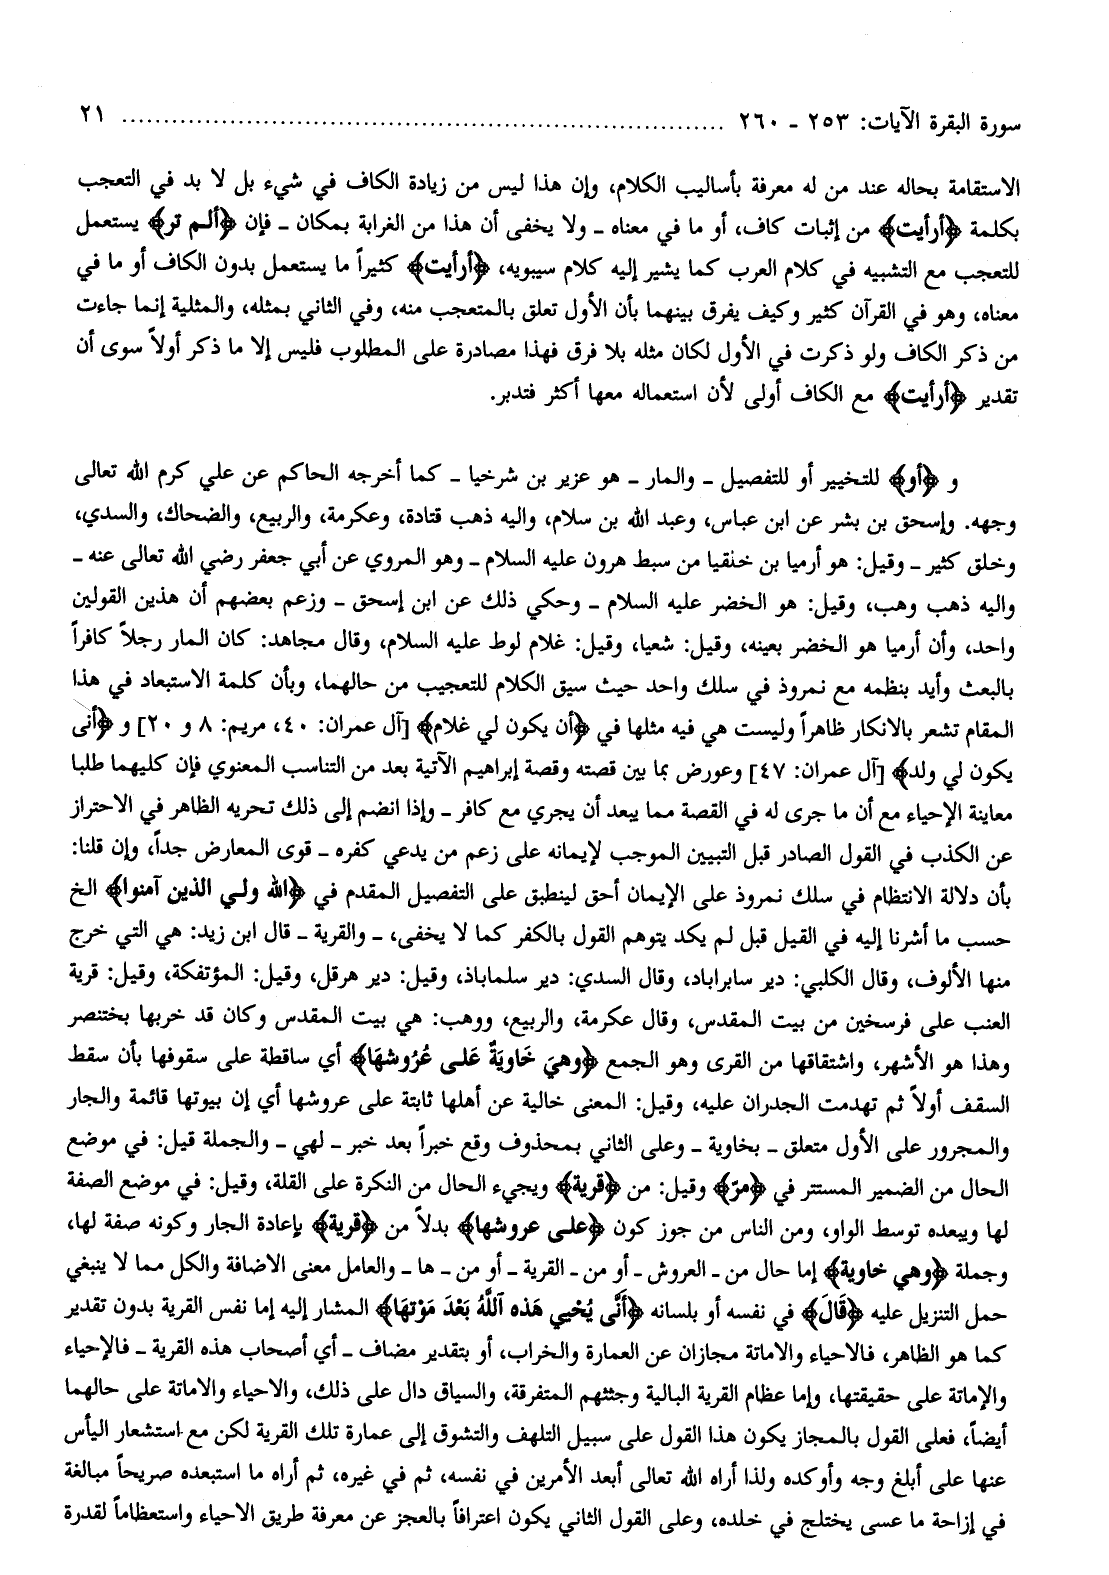 سورة البقرة الآيات: ٢٥٣ ـ ٢٦٠ ........................................................................ ٢١
الاستقامة بحاله عند من له معرفة بأساليب الكلام، وإن هذا ليس من زيادة الكاف في شيء بل لا بد في التعجب
بكلمة ﴿أرأيت﴾ من إثبات كاف، أو ما في معناه ـ ولا يخفى أن هذا من الغرابة بمكان ـ فإن ﴿ألم تر﴾ يستعمل
للتعجب مع التشبيه في كلام العرب كما يشير إليه كلام سيبويه، ﴿أرأيت﴾ كثيراً ما يستعمل بدون الكاف أو ما في
معناه، وهو في القرآن كثير وكيف يفرق بينهما بأن الأول تعلق بالمتعجب منه، وفي الثاني بمثله، والمثلية إنما جاءت
من ذكر الكاف ولو ذكرت في الأول لكان مثله بلا فرق فهذا مصادرة على المطلوب فليس إلا ما ذكر أولاً سوى أن
تقدير ﴿أرأيت﴾ مع الكاف أولى لأن استعماله معها أكثر فتدبر.
و ﴿أو﴾ للتخيير أو للتفصيل ـ والمار ـ هو عزير بن شرخيا ـ كما أخرجه الحاكم عن علي كرم الله تعالى
وجهه. وإسحق بن بشر عن ابن عباس، وعبد الله بن سلام، واليه ذهب قتادة، وعكرمة، والربيع، والضحاك، والسدي،
وخلق كثير ـ وقيل: هو أرميا بن خلقيا من سبط هرون عليه السلام ـ وهو المروي عن أبي جعفر رضي الله تعالى عنه ـ
واليه ذهب وهب، وقيل: هو الخضر عليه السلام ـ وحكي ذلك عن ابن إسحق ـ وزعم بعضهم أن هذين القولين
واحد، وأن أرميا هو الخضر بعينه، وقيل: شعيا، وقيل: غلام لوط عليه السلام، وقال مجاهد: كان المار رجلاً كافراً
بالبعث وأيد بنظمه مع نمروذ في سلك واحد حيث سيق الكلام للتعجيب من حالهما، وبأن كلمة الاستبعاد في هذا
المقام تشعر بالانكار ظاهراً وليست هي فيه مثلها في ﴿أن يكون لي غلام﴾ [آل عمران: ٤٠، مريم: ٨ و ٢٠] و ﴿أنى
يكون لي ولد﴾ [آل عمران: ٤٧] وعورض بما بين قصته وقصة إبراهيم الآتية بعد من التناسب المعنوي فإن كليهما طلبا
معاينة الإحياء مع أن ما جرى له في القصة مما يبعد أن يجري مع كافر ـ وإذا انضم إلى ذلك تحريه الظاهر في الاحتراز
عن الكذب في القول الصادر قبل التبيين الموجب لإيمانه على زعم من يدعي كفره ـ قوى المعارض جداً، وإن قلنا:
بأن دلالة الانتظام في سلك نمروذ على الإيمان أحق لينطبق على التفصيل المقدم في ﴿الله ولي الذين آمنوا﴾ الخ
حسب ما أشرنا إليه في القيل قبل لم يكد يتوهم القول بالكفر كما لا يخفى، ـ والقرية ـ قال ابن زيد: هي التي خرج
منها الألوف، وقال الكلبي: دير سابراباد، وقال السدي: دير سلماباذ، وقيل: دير هرقل، وقيل: المؤتفكة، وقيل: قرية
العنب على فرسخين من بيت المقدس، وقال عكرمة، والربيع، ووهب: هي بيت المقدس وكان قد خربها بختنصر
وهذا هو الأشهر، واشتقاقها من القرى وهو الجمع ﴿وهيَ خَاويَةٌ عَلى عُرُوشهَا﴾ أي ساقطة على سقوفها بأن سقط
السقف أولاً ثم تهدمت الجدران عليه، وقيل: المعنى خالية عن أهلها ثابتة على عروشها أي إن بيوتها قائمة والجار
والمجرور على الأول متعلق ـ بخاوية ـ وعلى الثاني بمحذوف وقع خبراً بعد خبر ـ لهي ـ والجملة قيل: في موضع
الحال من الضمير المستتر في ﴿مرّ﴾ وقيل: من ﴿قرية﴾ ويجيء الحال من النكرة على القلة، وقيل: في موضع الصفة
لها ويبعده توسط الواو، ومن الناس من جوز كون ﴿على عروشها﴾ بدلاً من ﴿قرية﴾ بإعادة الجار وكونه صفة لها،
وجملة ﴿وهي خاوية﴾ إما حال من ـ العروش ـ أو من ـ القرية ـ أو من ـ ها ـ والعامل معنى الاضافة والكل مما لا ينبغي
حمل التنزيل عليه ﴿قَالَ﴾ في نفسه أو بلسانه ﴿أَنَّى يُحْيي هَذه ٱللَّهُ بَعْدَ مَوْتهَا﴾ المشار إليه إما نفس القرية بدون تقدير
كما هو الظاهر، فالاحياء والاماتة مجازان عن العمارة والخراب، أو بتقدير مضاف ـ أي أصحاب هذه القرية ـ فالإحياء
والإماتة على حقيقتها، وإما عظام القرية البالية وجثثهم المتفرقة، والسياق دال على ذلك، والاحياء والاماتة على حالهما
أيضاً، فعلى القول بالمجاز يكون هذا القول على سبيل التلهف والتشوق إلى عمارة تلك القرية لكن مع استشعار اليأس
عنها على أبلغ وجه وأوكده ولذا أراه الله تعالى أبعد الأمرين في نفسه، ثم في غيره، ثم أراه ما استبعده صريحاً مبالغة
في إزاحة ما عسى يختلج في خلده، وعلى القول الثاني يكون اعترافاً بالعجز عن معرفة طريق الاحياء واستعظاماً لقدرة